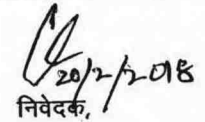 20/2/2018
निवेदक,